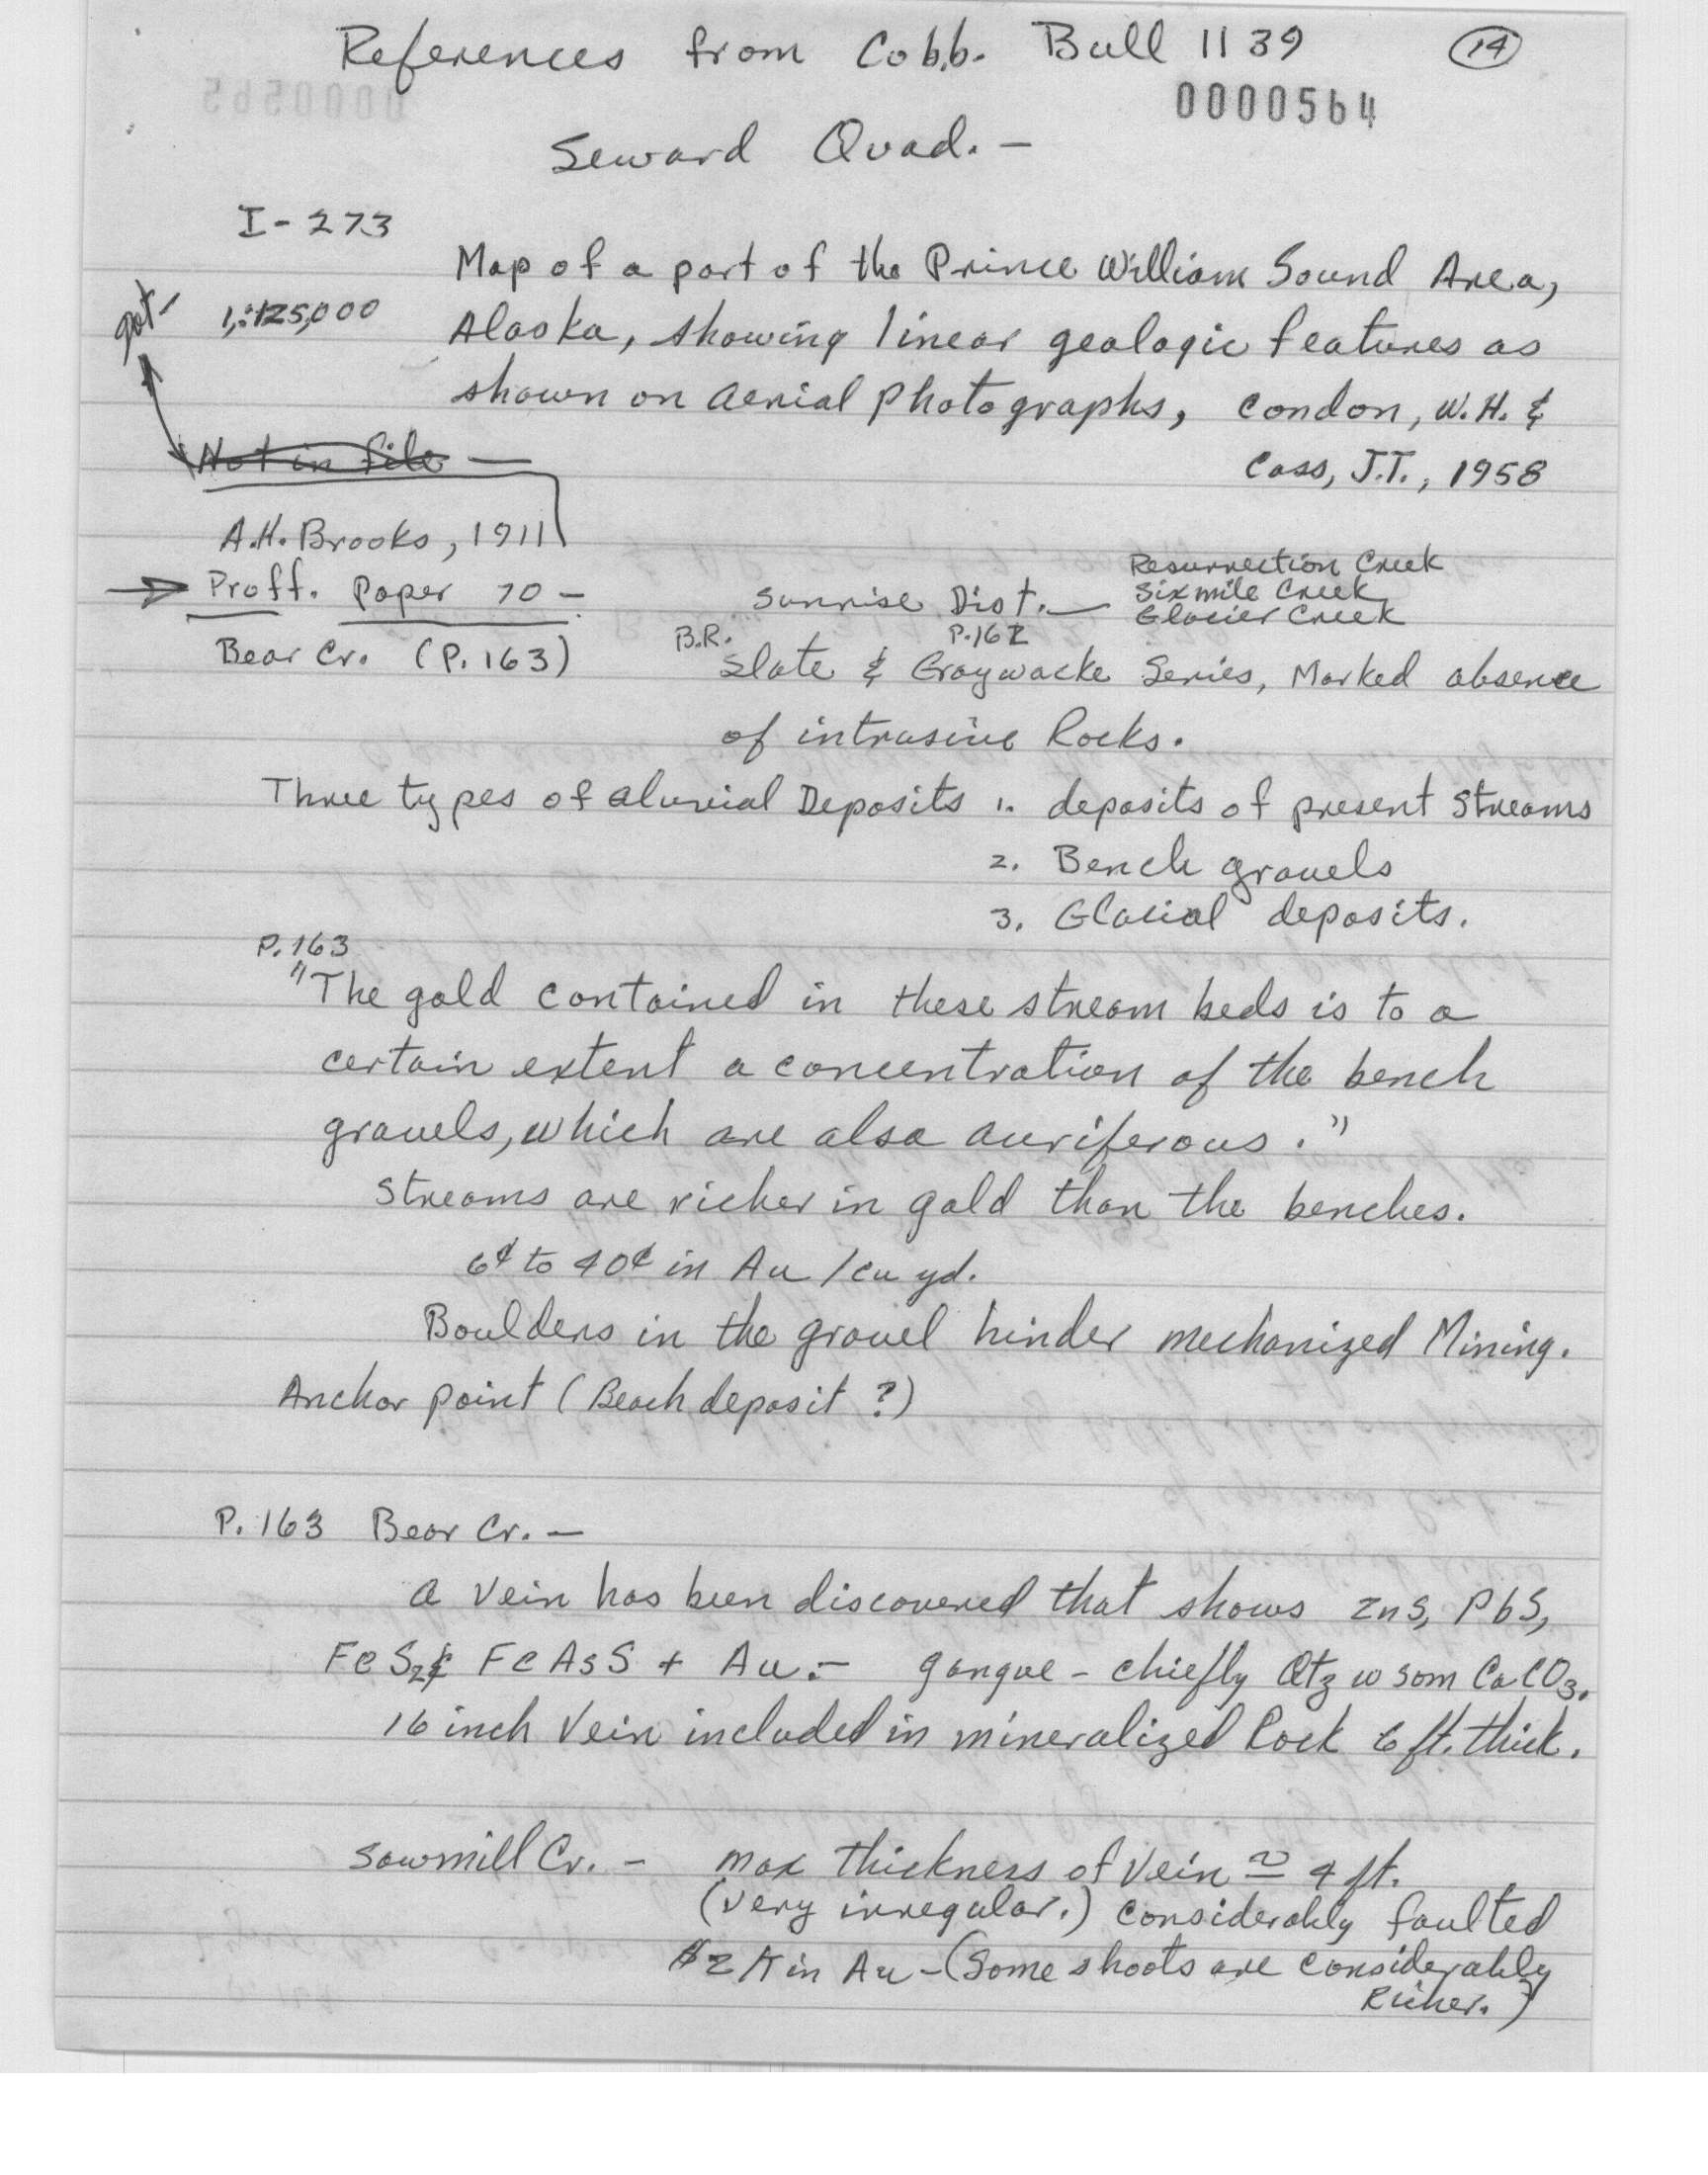 References from Cobb. Bull 1139 14
0000564
Seward Quad. -
I-273
Map of a part of the Prince William Sound Area,
got 1:125,000 Alaska, showing linear geologic features as
shown on aerial photographs, Condon, W.H. &
Not in file - Cass, J.T., 1958
A.H. Brooks, 1911
Resurrection Creek
→ Proff. Paper 70 - Sunrise Dist. — Sixmile Creek
Glacier Creek
Bear Cr. (P. 163) B.R. P.162
Slate & Graywacke Series, Marked absence
of intrusive Rocks.
Three types of aluvial Deposits 1. deposits of present Streams
2. Bench gravels
3. Glacial deposits.
P.163
"The gold contained in these stream beds is to a
certain extent a concentration of the bench
gravels, which are also auriferous."
Streams are richer in gold than the benches.
6¢ to 40¢ in Au /cu yd.
Boulders in the gravel hinder mechanized Mining.
Anchor point (Beach deposit ?)
P. 163 Bear Cr. -
A vein has been discovered that shows ZnS, PbS,
FeS2 & FeAsS + Au. - gangue - chiefly Qtz w som CaCO3.
16 inch Vein included in mineralized Rock 6 ft. thick.
Sawmill Cr. - max thickness of Vein ≈ 4 ft.
(very irregular.) considerably faulted
$2/T in Au - (Some shoots are considerably
Richer.)